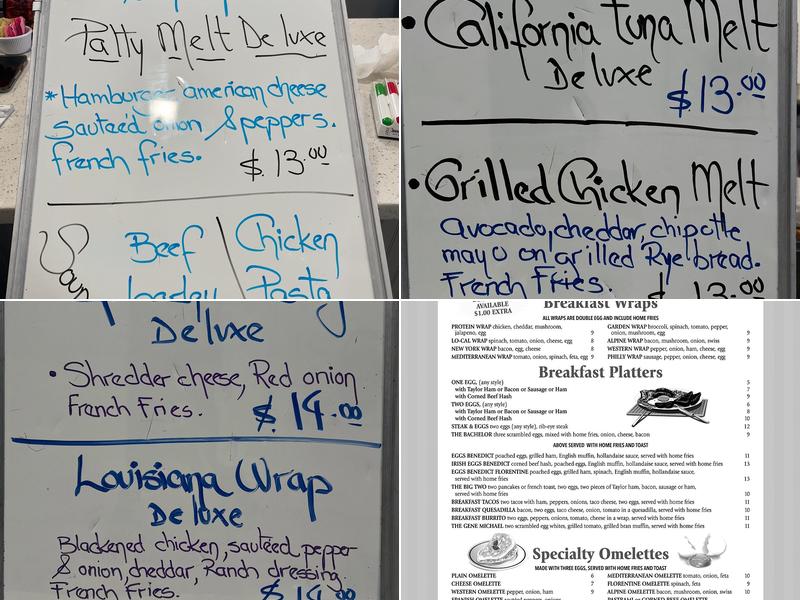 Patty Melt Deluxe
*Hamburger american cheese
sauteéd onion & peppers.
french fries. $13.00
Soup
Beef
barley
Chicken
Pasta
• California tuna Melt
Deluxe $13.00
• Grilled Chicken Melt
Avocado, cheddar, chipotle
mayo on grilled Rye bread.
French Fries. 13.00
Deluxe
• Shredder cheese, Red onion
French Fries. $14.00
Louisiana Wrap
Deluxe
Blackened chicken, sautéed pepper
& onion, cheddar, Ranch dressing.
French Fries. $14.00
AVAILABLE
$1.00 EXTRA
Breakfast Wraps
ALL WRAPS ARE DOUBLE EGG AND INCLUDE HOME FRIES
PROTEIN WRAP chicken, cheddar, mushroom,
jalapeno, egg 9
LO-CAL WRAP spinach, tomato, onion, cheese, egg 8
NEW YORK WRAP bacon, egg, cheese 8
MEDITERRANEAN WRAP tomato, onion, spinach, feta, egg 9
GARDEN WRAP broccoli, spinach, tomato, pepper,
onion, mushroom, egg 9
ALPINE WRAP bacon, mushroom, onion, swiss 9
WESTERN WRAP pepper, onion, ham, cheese, egg 9
PHILLY WRAP sausage, pepper, onion, cheese, egg 9
Breakfast Platters
ONE EGG, (any style) 5
with Taylor Ham or Bacon or Sausage or Ham 7
with Corned Beef Hash 9
TWO EGGS, (any style) 6
with Taylor Ham or Bacon or Sausage or Ham 8
with Corned Beef Hash 10
STEAK & EGGS two eggs (any style), rib-eye steak 12
THE BACHELOR three scrambled eggs, mixed with home fries, onion, cheese, bacon 9
ABOVE SERVED WITH HOME FRIES AND TOAST
EGGS BENEDICT poached eggs, grilled ham, English muffin, hollandaise sauce, served with home fries 11
IRISH EGGS BENEDICT corned beef hash, poached eggs, English muffin, hollandaise sauce, served with home fries 13
EGGS BENEDICT FLORENTINE poached eggs, grilled ham, spinach, English muffin, hollandaise sauce,
served with home fries 13
THE BIG TWO two pancakes or french toast, two eggs, two pieces of Taylor ham, bacon, sausage or ham,
served with home fries 10
BREAKFAST TACOS two tacos with ham, peppers, onions, taco cheese, two eggs, served with home fries 11
BREAKFAST QUESADILLA bacon, two eggs, taco cheese, onion, tomato in a quesadilla, served with home fries 10
BREAKFAST BURRITO two eggs, peppers, onions, tomato, cheese in a wrap, served with home fries 11
THE GENE MICHAEL two scrambled egg whites, grilled tomato, grilled bran muffin, served with home fries 11
Specialty Omelettes
MADE WITH THREE EGGS, SERVED WITH HOME FRIES AND TOAST
PLAIN OMELETTE 6
CHEESE OMELETTE 7
WESTERN OMELETTE pepper, onion, ham 9
SPANISH OMELETTE sauteed peppers, onions,
MEDITERRANEAN OMELETTE tomato, onion, feta 10
FLORENTINE OMELETTE spinach, feta 9
ALPINE OMELETTE bacon, mushroom, onion, swiss 10
PASTRAMI or CORNED BEEF OMELETTE